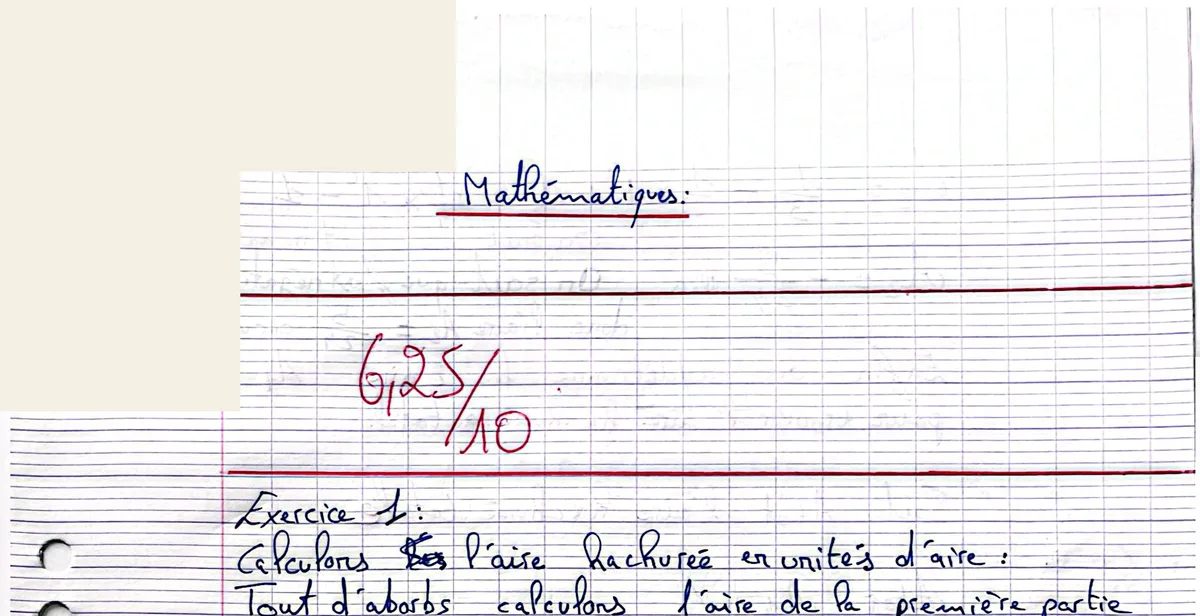 Mathématiques:
6,25/10
Exercice 1:
Calculons l'aire hachurée en unités d'aire :
Tout d'abords calculons l'aire de la première partie